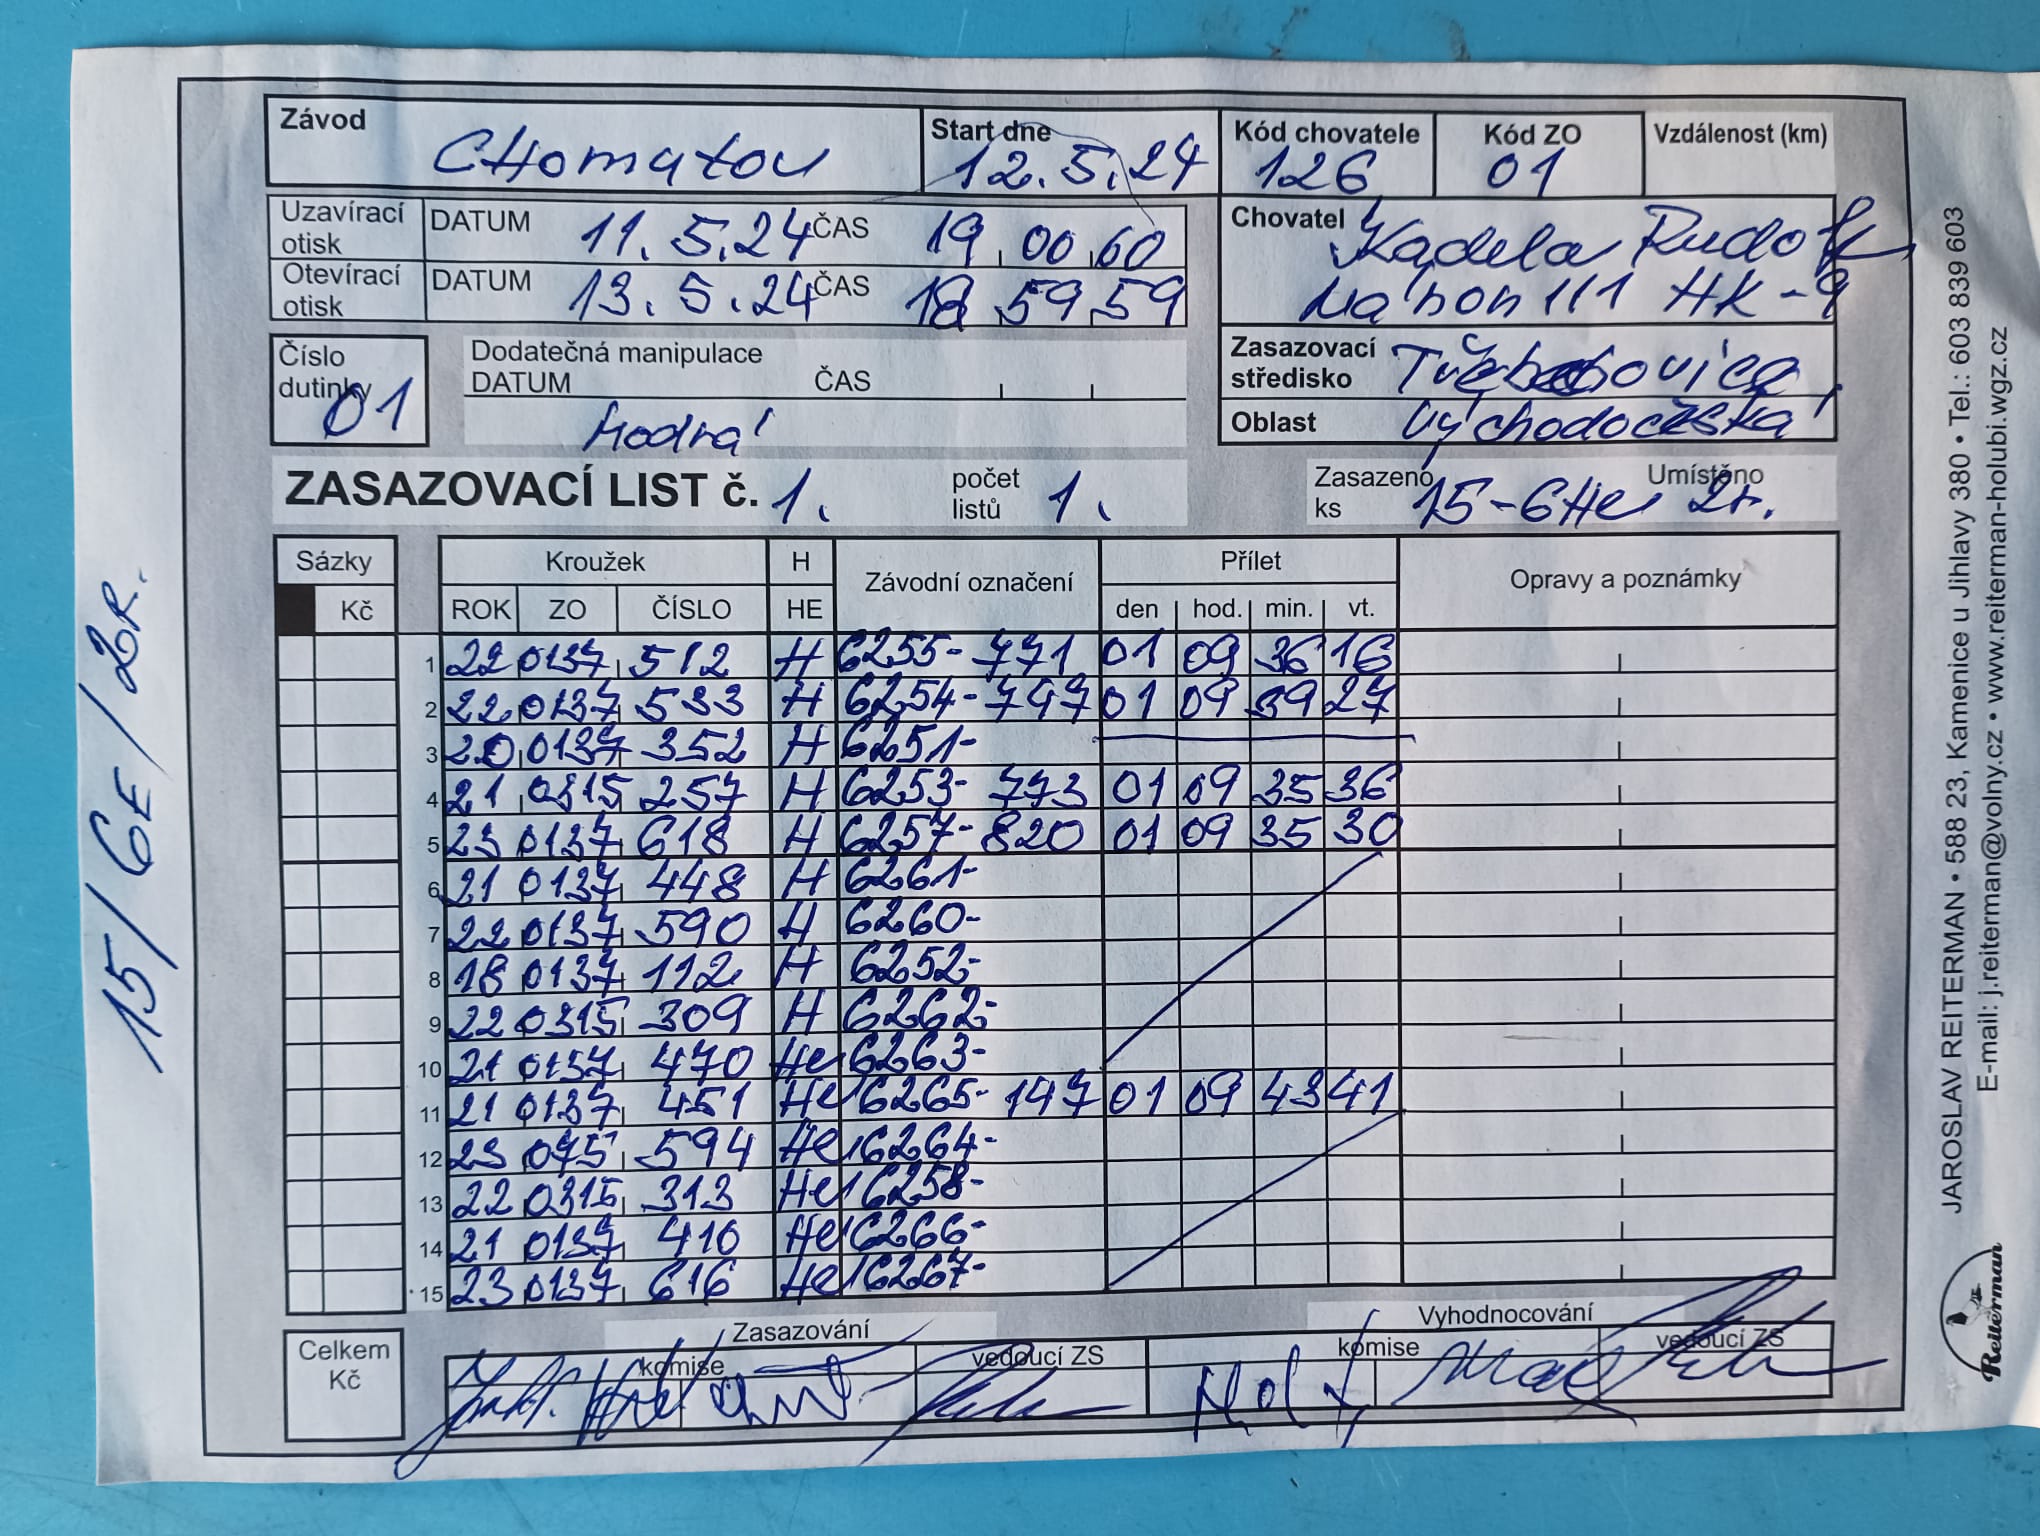 Závod Chomutov Start dne 12.5.24 Kód chovatele 126 Kód ZO 01 Vzdálenost (km)
Uzavírací otisk DATUM 11.5.24 ČAS 19 00 60
Otevírací otisk DATUM 13.5.24 ČAS 18 59 59
Chovatel Kadela Rudolf
Náhon 111 HK-9
Číslo dutinky 01
Dodatečná manipulace
DATUM ČAS
Modrá
Zasazovací středisko Třebechovice
Oblast Východočeská
ZASAZOVACÍ LIST č. 1. počet listů 1. Zasazeno ks 15-6He Umístěno 2r.
Sázky Kroužek H Závodní označení Přílet Opravy a poznámky
Kč ROK ZO ČÍSLO HE den hod. min. vt.
1 22 0137 512 H 6255- 771 01 09 36 16
2 22 0137 533 H 6254- 797 01 09 39 27
3 20 0137 352 H 6251-
4 21 0315 257 H 6253- 773 01 09 35 36
5 23 0137 618 H 6257- 820 01 09 35 30
6 21 0137 448 H 6261-
7 22 0137 590 H 6260-
8 18 0137 112 H 6252-
9 22 0315 309 H 6262-
10 21 0137 470 He 6263-
11 21 0137 451 He 6265- 147 01 09 43 41
12 23 075 594 He 6264-
13 22 0315 313 He 6258-
14 21 0137 410 He 6266-
15 23 0137 616 He 6267-
Celkem Kč
Zasazování Vyhodnocování
komise vedoucí ZS komise vedoucí ZS
15/6E/2R.
JAROSLAV REITERMAN • 588 23, Kamenice u Jihlavy 380 • Tel.: 603 839 603
E-mail: j.reiterman@volny.cz • www.reiterman-holubi.wgz.cz
Reiterman